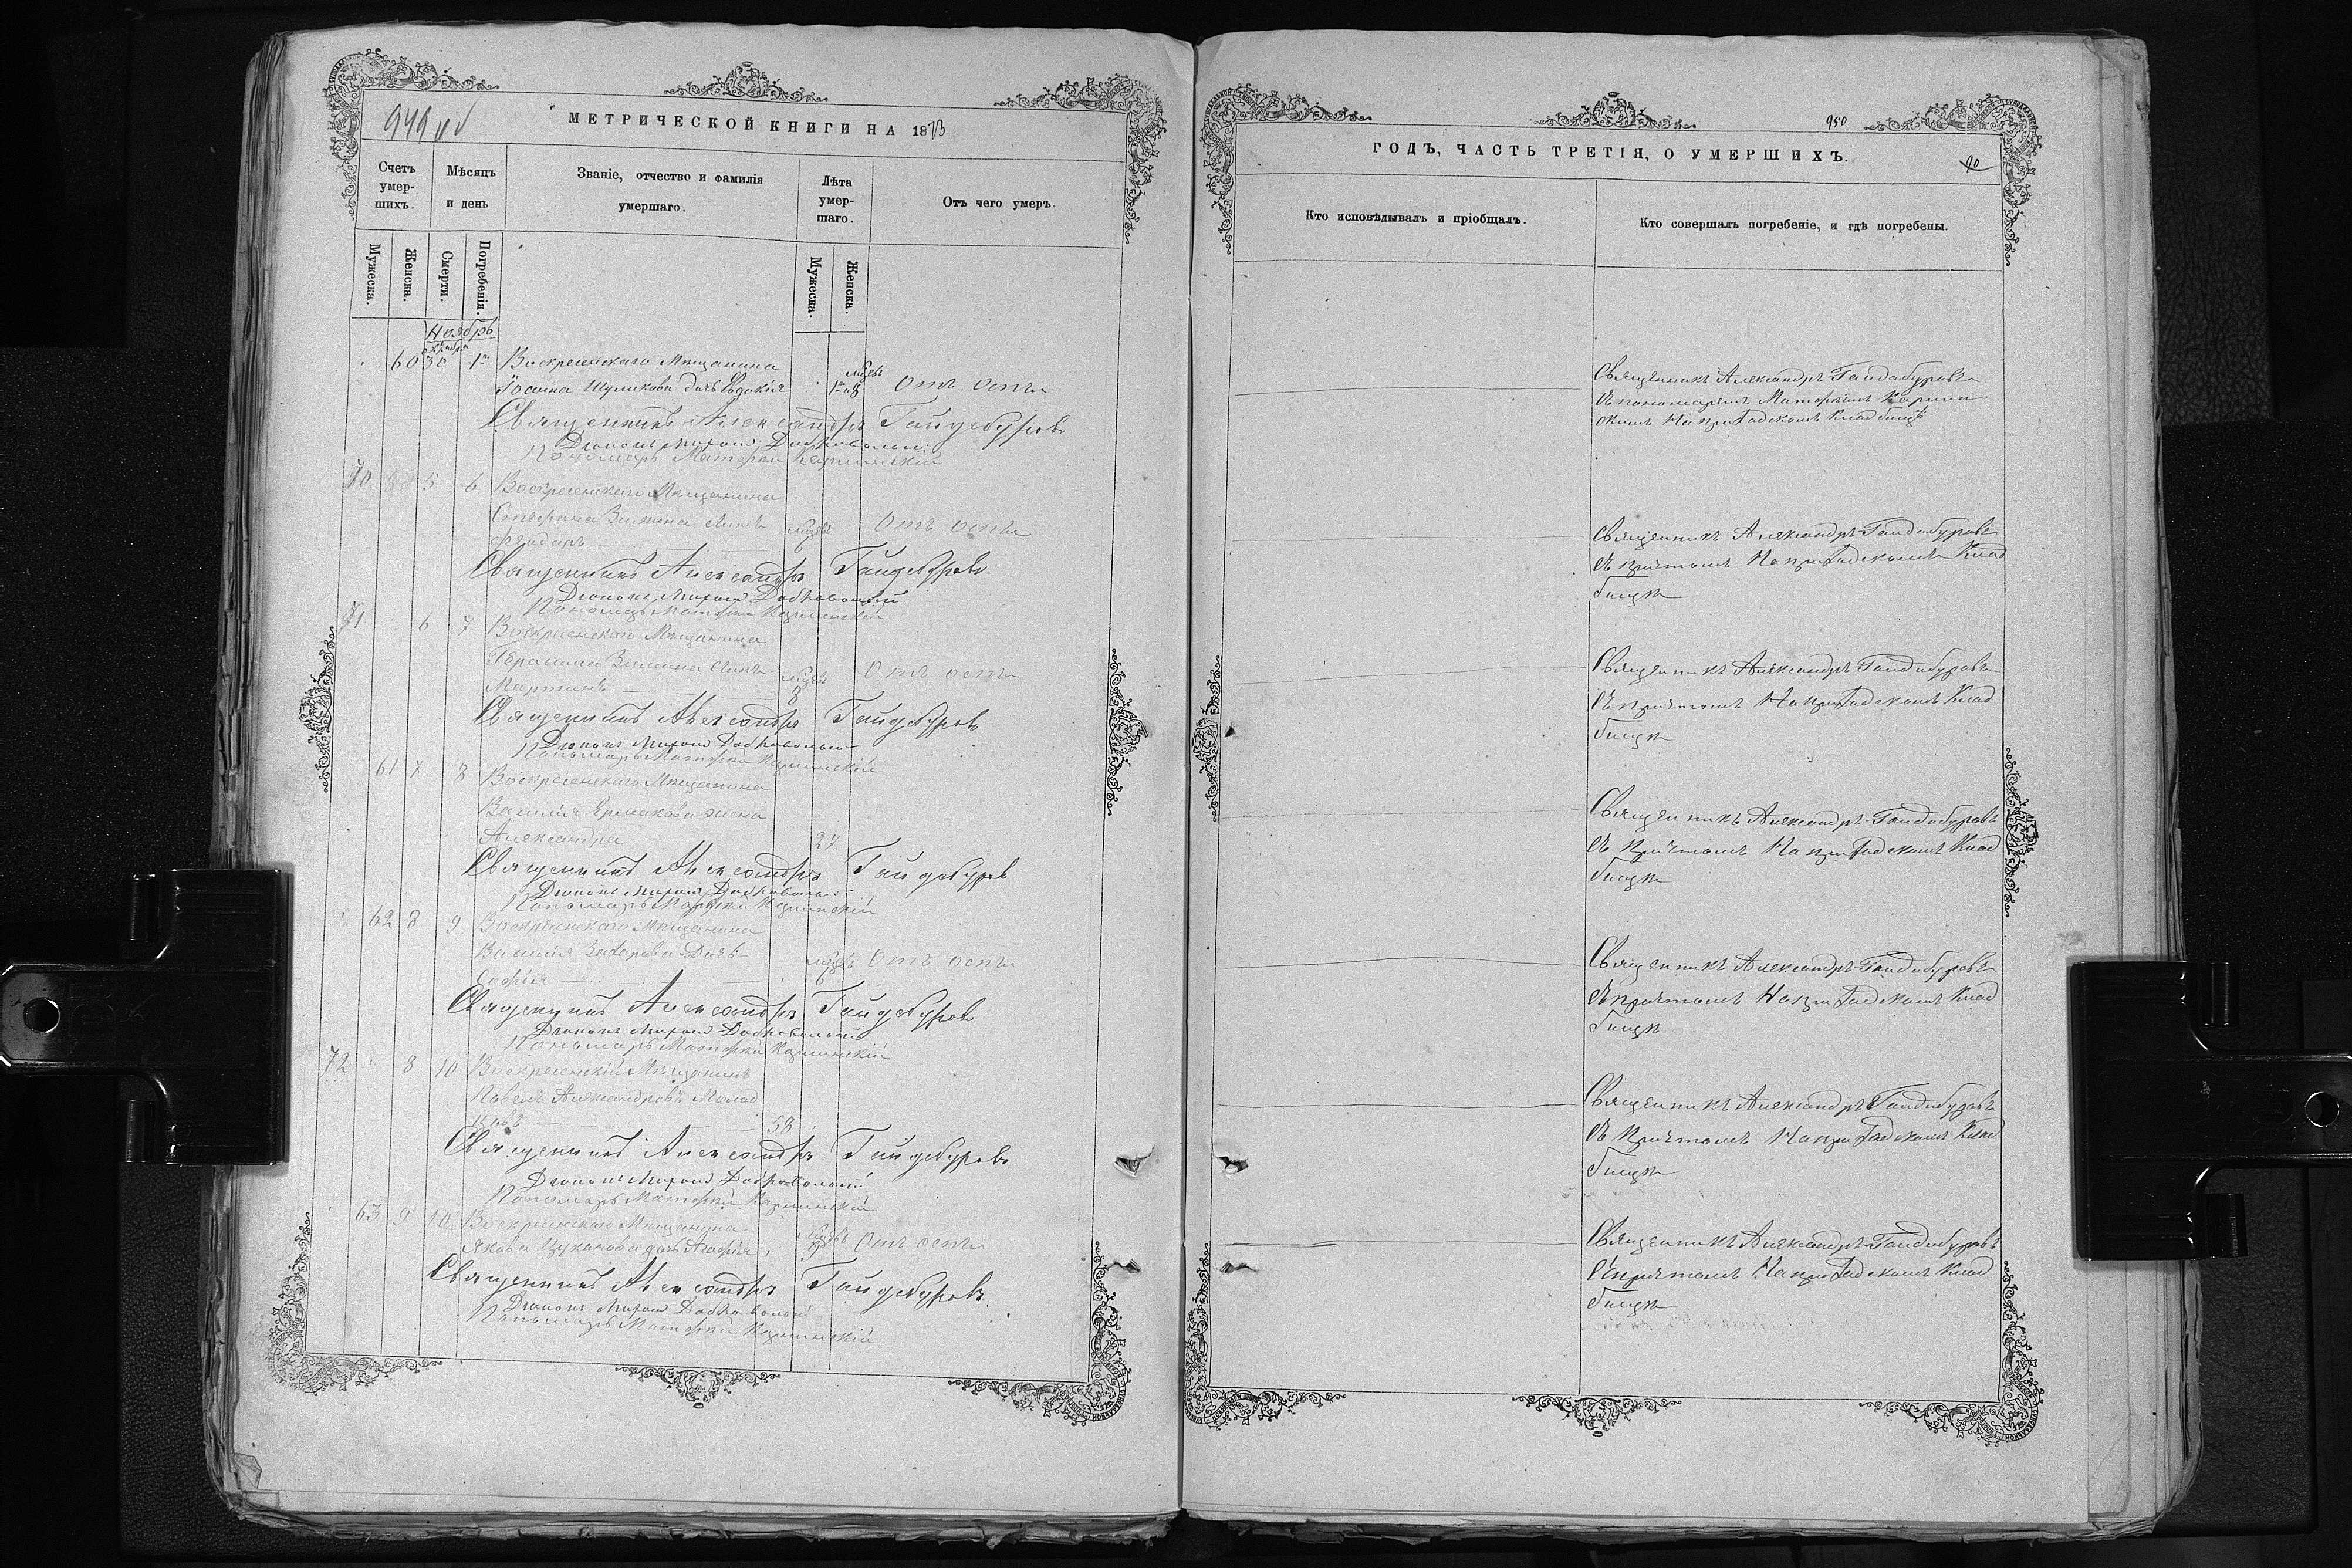 949 об
МЕТРИЧЕСКОЙ КНИГИ НА 1873
Счетъ умер-шихъ.
Мѣсяцъ и день
Званіе, отчество и фамилія умершаго.
Лѣта умер-шаго.
Отъ чего умеръ.
Мужеска.
Женска.
Смерти.
Погребенія.
Мужеска.
Женска.
Ноябрь
октября
60 30 1 Воскресенскаго Мѣщанина
Іоанна Шуликова дочь Евдокія Отъ оспы
Священникъ Александръ Гайдебуровъ
Діаконъ Михаил Добровольскій
Пономарь Матѳей Карпинскій
70 5 6 Воскресенскаго Мѣщанина
Стефана Зимина сынъ мѣсяц Отъ оспы
Ѳеодоръ 6
Священникъ Александръ Гайдебуровъ
Діаконъ Михаил Добровольскій
Пономарь Матѳей Карпинскій
71 6 7 Воскресенскаго Мѣщанина
Герасима Зимина сынъ мѣсяц Отъ оспы
Мартинъ 8
Священникъ Александръ Гайдебуровъ
Діаконъ Михаил Добровольскій
Пономарь Матѳей Карпинскій
61 7 8 Воскресенскаго Мѣщанина
Василія Ермакова жена
Александра 27
Священникъ Александръ Гайдебуровъ
Діаконъ Михаил Добровольскій
Пономарь Матѳей Карпинскій
62 8 9 Воскресенскаго Мѣщанина
Василія Захарова Дочь мѣсяц Отъ оспы
Софія 6
Священникъ Александръ Гайдебуровъ
Діаконъ Михаил Добровольскій
Пономарь Матѳей Карпинскій
72 8 10 Воскресенскій Мѣщанинъ
Павелъ Александровъ Молод
цовъ 58
Священникъ Александръ Гайдебуровъ
Діаконъ Михаил Добровольскій
Пономарь Матѳей Карпинскій
63 9 10 Воскресенскаго Мѣщанина
Якова Цуканова дочь Агафія Отъ оспы
Священникъ Александръ Гайдебуровъ
Діаконъ Михаил Добровольскій
Пономарь Матѳей Карпинскій
950
ГОДЪ, ЧАСТЬ ТРЕТІЯ, О УМЕРШИХЪ.
Кто исповѣдывалъ и пріобщалъ.
Кто совершалъ погребеніе, и гдѣ погребены.
Священникъ Александръ Гайдабуровъ
съ пономаремъ Матѳеемъ Карпин
скимъ На приградскомъ Кладбищѣ
Священникъ Александръ Гайдабуровъ
съ причтомъ На приградскомъ Клад
бищѣ
Священникъ Александръ Гайдабуровъ
съ причтомъ На приградскомъ Клад
бищѣ
Священникъ Александръ Гайдабуровъ
съ причтомъ На приградскомъ Клад
бищѣ
Священникъ Александръ Гайдабуровъ
съ причтомъ На приградскомъ Клад
бищѣ
Священникъ Александръ Гайдабуровъ
съ причтомъ На приградскомъ Клад
бищѣ
Священникъ Александръ Гайдабуровъ
съ причтомъ На приградскомъ Клад
бищѣ